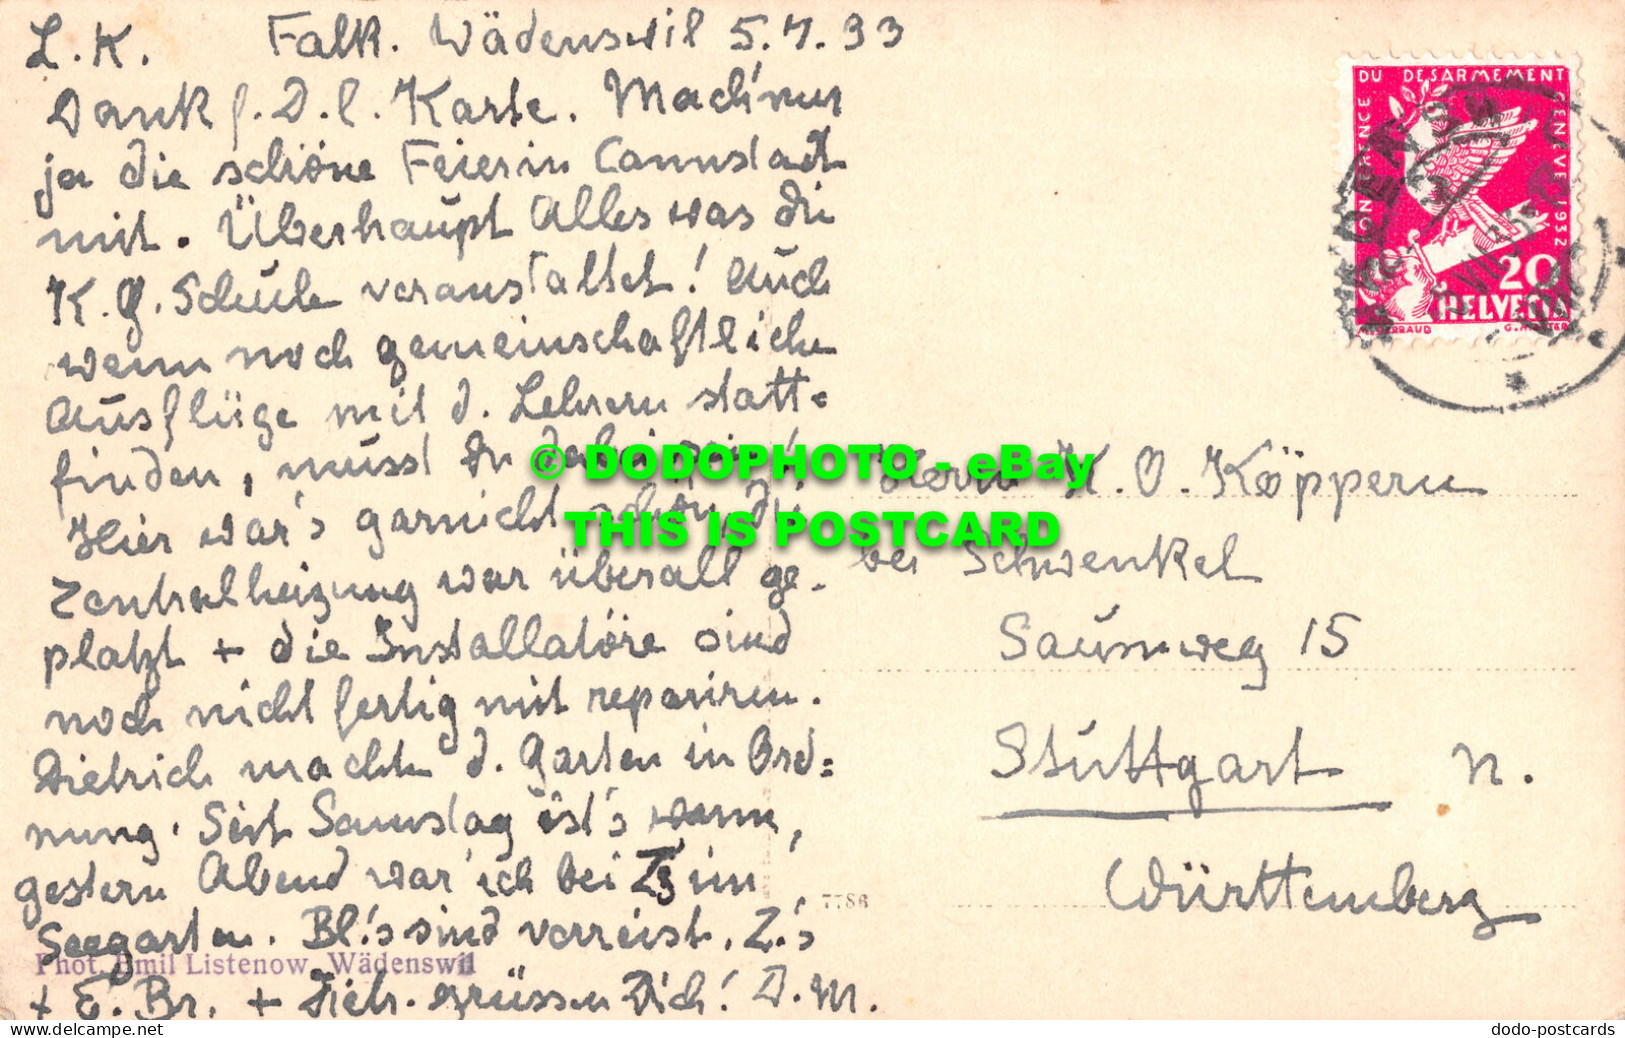 L. K. Falk. Wädenswil 5.7.33
Dank f. D. l. Karte. Mach' nur
ja die schöne Feier in Cannstadt
mit. Überhaupt Alles was die
K. G. Schule veranstaltet! Auch
wenn noch gemeinschaftliche
Ausflüge mit d. Lehrern statt=
finden, musst Du dabei sein!
Hier war's garnicht schön, die
Zentralheizung war überall ge-
platzt + die Installatöre sind
noch nicht fertig mit repariren.
Dietrich machte d. Garten in Ord=
nung. Seit Samstag ist's warm,
gestern Abend war ich bei Zs im
Seegarten. Bl.'s sind verreist. Z.'s
+ E. Br. + Dietr. grüssen Dich! D. M.
Phot. Emil Listenow, Wädenswil
7786
Herrn K. O. Köppern
bei Schwenkel
Saumweg 15
Stuttgart n.
Württemberg
CONFERENCE DU DESARMEMENT GENEVE 1932
20
HELVETIA
© DODOPHOTO - eBay
THIS IS POSTCARD
dodo-postcards